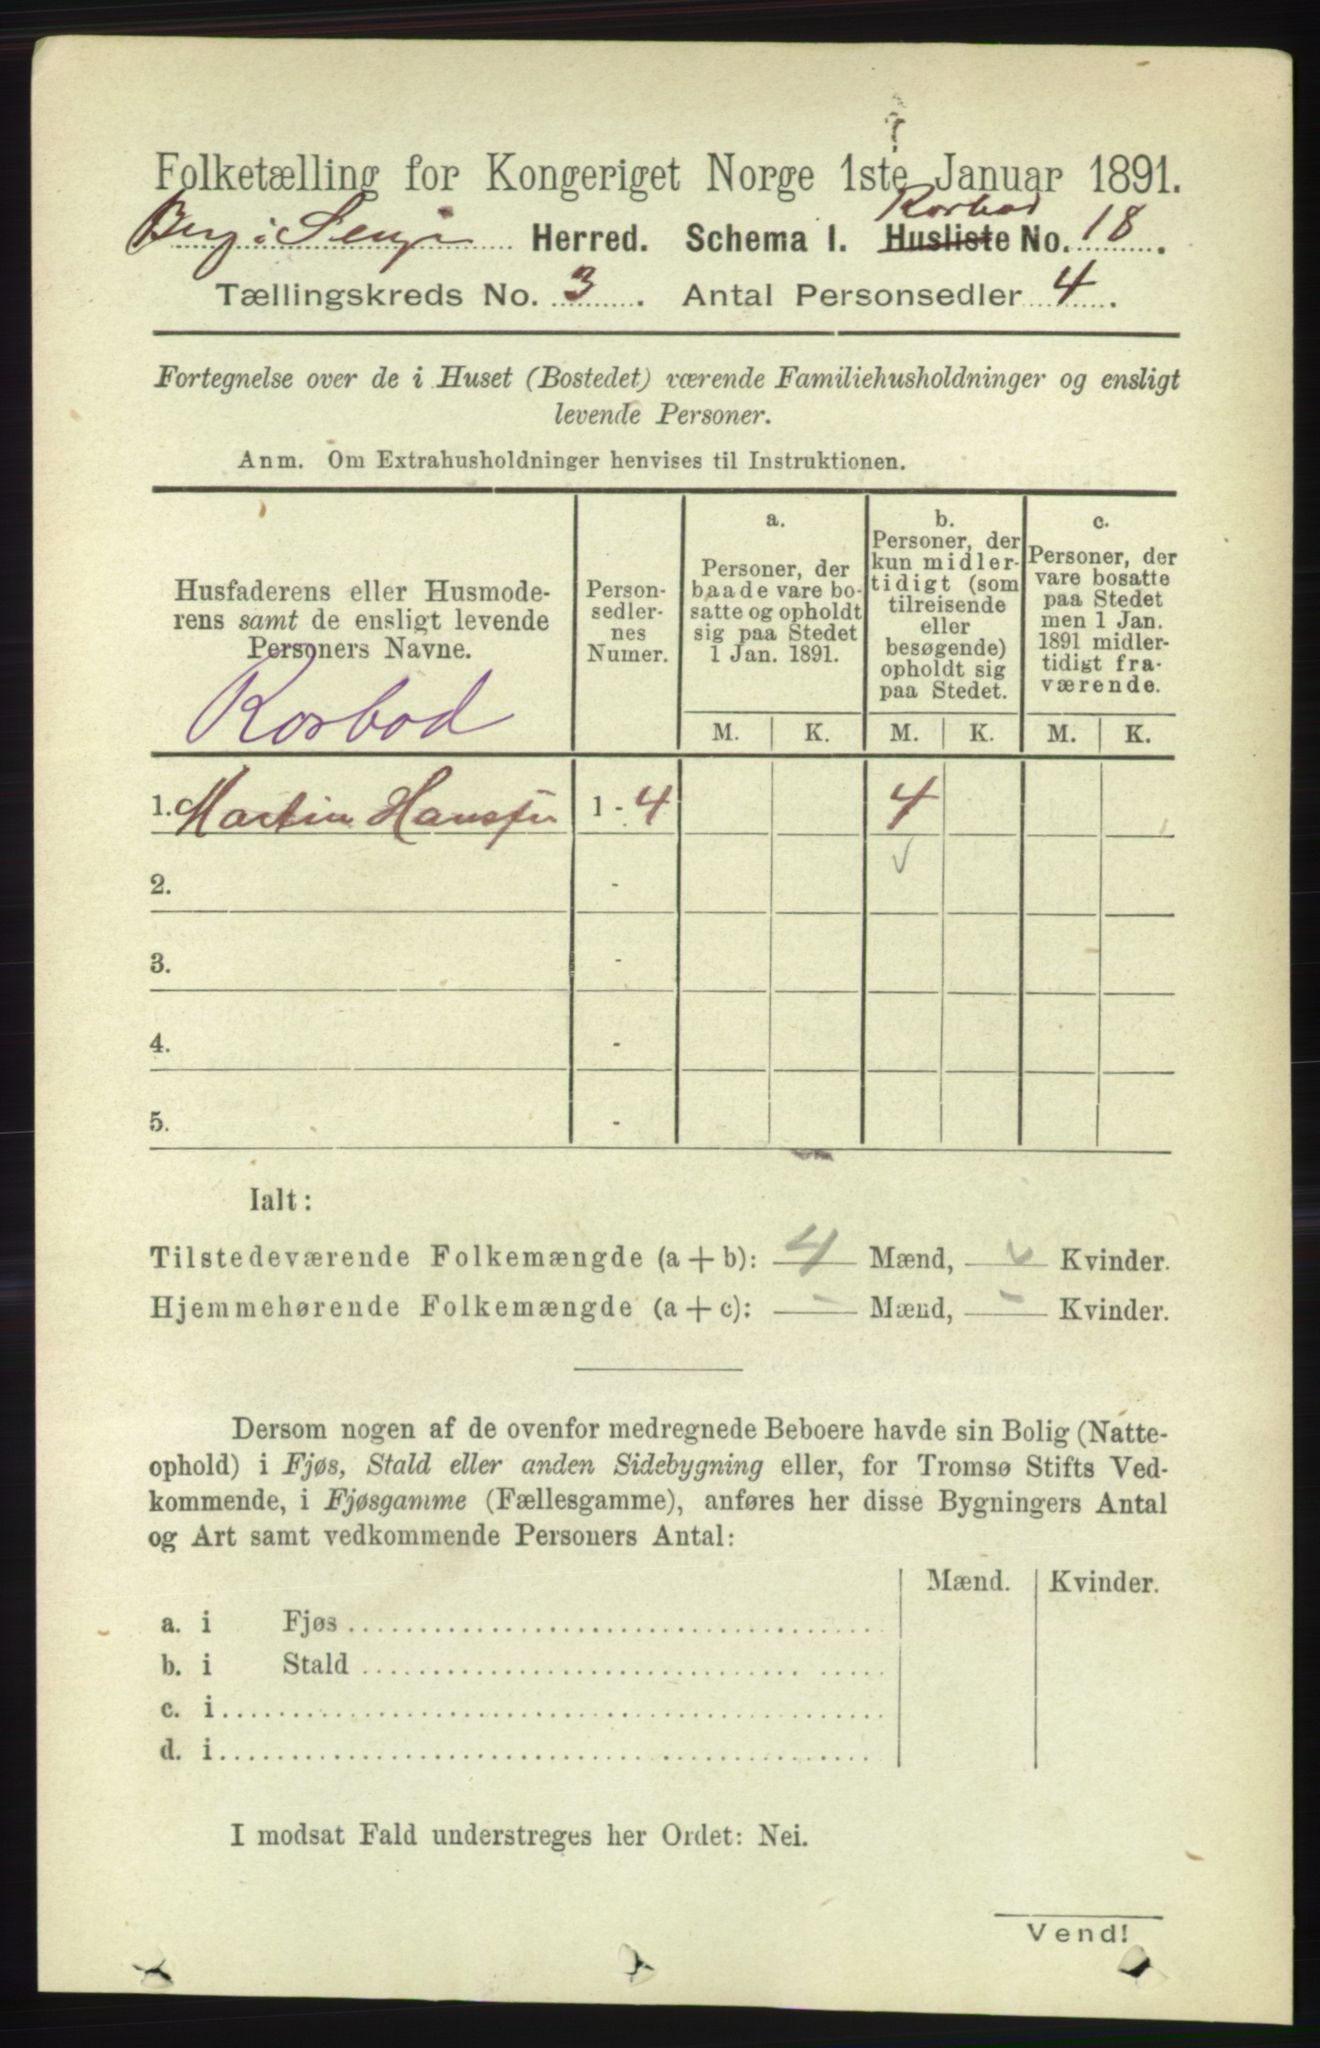 ?
Folketælling for Kongeriget Norge 1ste Januar 1891.
Rorbod
Berg i Senjen Herred. Schema I. Husliste No. 18.
Tællingskreds No. 3. Antal Personsedler 4.
Fortegnelse over de i Huset (Bostedet) værende Familiehusholdninger og ensligt
levende Personer.
Anm. Om Extrahusholdninger henvises til Instruktionen.
Husfaderens eller Husmode-
rens samt de ensligt levende
Personers Navne.
Rorbod
Person-
sedler-
nes
Numer.
a.
Personer, der
baade vare bo-
satte og opholdt
sig paa Stedet
1 Jan. 1891.
b.
Personer, der
kun midler-
tidigt (som
tilreisende
eller
besøgende)
opholdt sig
paa Stedet.
c.
Personer, der
vare bosatte
paa Stedet
men 1 Jan.
1891 midler-
tidigt fra-
værende.
M. K. M. K. M. K.
1. Martin Hansen 1 - 4 4
2. -
3. -
4. -
5. -
Ialt:
Tilstedeværende Folkemængde (a + b): 4 Mænd, Kvinder.
Hjemmehørende Folkemængde (a + c): - Mænd, - Kvinder.
Dersom nogen af de ovenfor medregnede Beboere havde sin Bolig (Natte-
ophold) i Fjøs, Stald eller anden Sidebygning eller, for Tromsø Stifts Ved-
kommende, i Fjøsgamme (Fællesgamme), anføres her disse Bygningers Antal
og Art samt vedkommende Personers Antal:
Mænd. Kvinder.
a. i Fjøs
b. i Stald
c. i
d. i
I modsat Fald understreges her Ordet: Nei.
Vend!